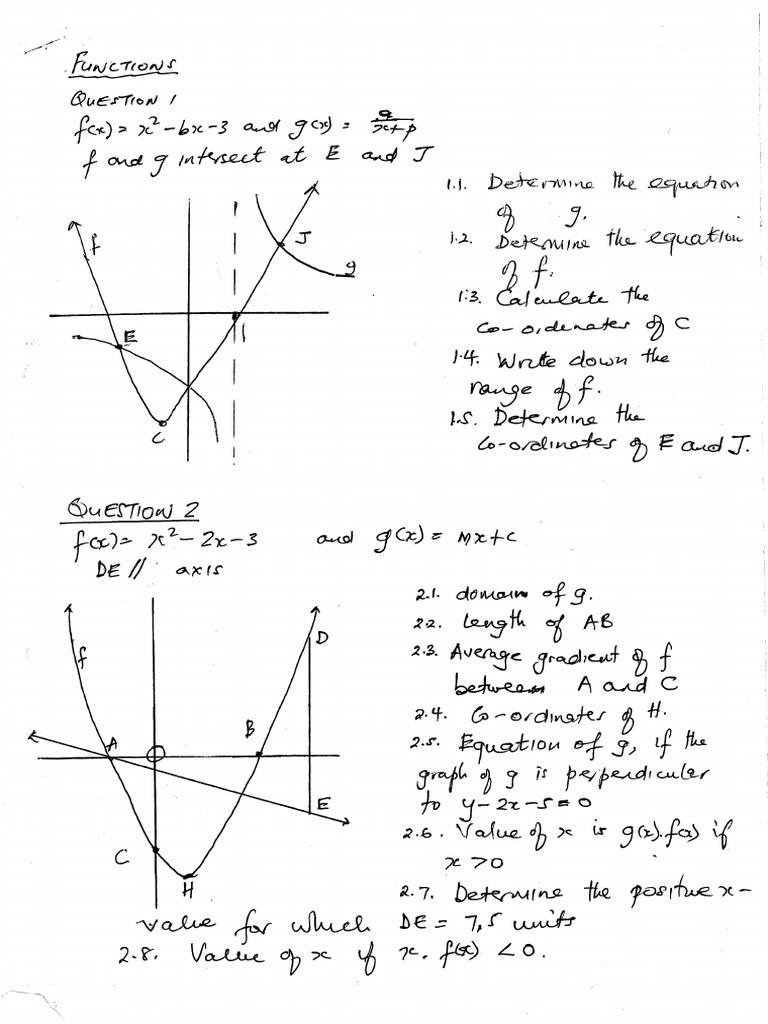 FUNCTIONS
QUESTION 1
f(x) = x² - bx - 3 and g(x) = a/(x+p)
f and g intersect at E and J
1.1. Determine the equation
of g.
1.2. Determine the equation
of f.
1.3. Calculate the
co-ordenates of C
1.4. Write down the
range of f.
1.5. Determine the
co-ordinates of E and J.
f
J
g
E
1
C
QUESTION 2
f(x) = x² - 2x - 3 and g(x) = mx+c
DE // axis
2.1. domain of g.
2.2. Length of AB
2.3. Average gradient of f
between A and C
2.4. Co-ordinates of H.
2.5. Equation of g, if the
graph of g is perpendicular
to y-2x-5=0
2.6. Value of x is g(x).f(x) if
x > 0
2.7. Determine the positive x-
value for which DE = 7,5 units
2.8. Value of x if x. f(x) < 0.
f
D
A
O
B
E
C
H